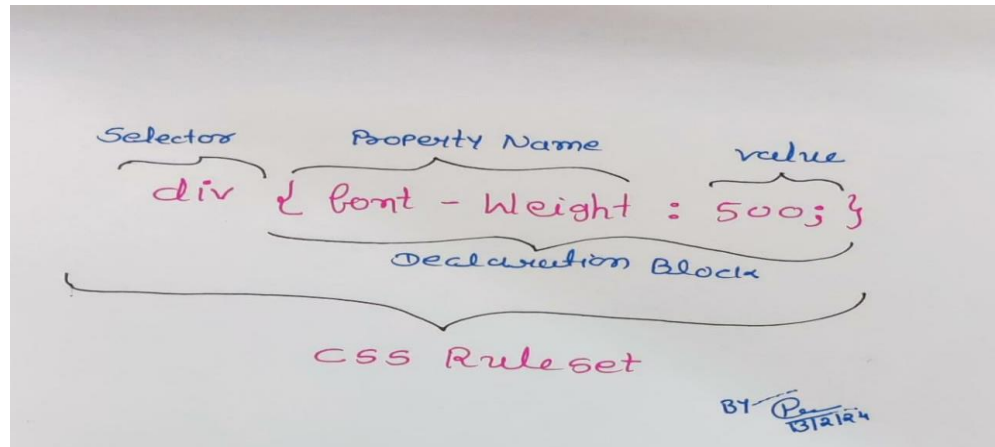 Selector Property Name value
div { font - Weight : 500; }
Declaration Block
CSS Ruleset
BY
13/2/24